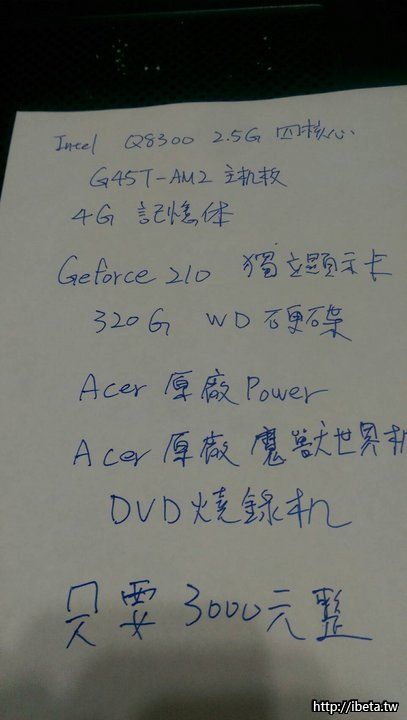 Intel Q8300 2.5G 四核心
G45T-AM2 主机板
4G 記憶体
Geforce 210 獨立顯示卡
320G WD 硬碟
Acer 原廠 Power
Acer 原廠 魔獸世界机
DVD 燒錄机
只要 3000元整
http://ibeta.tw